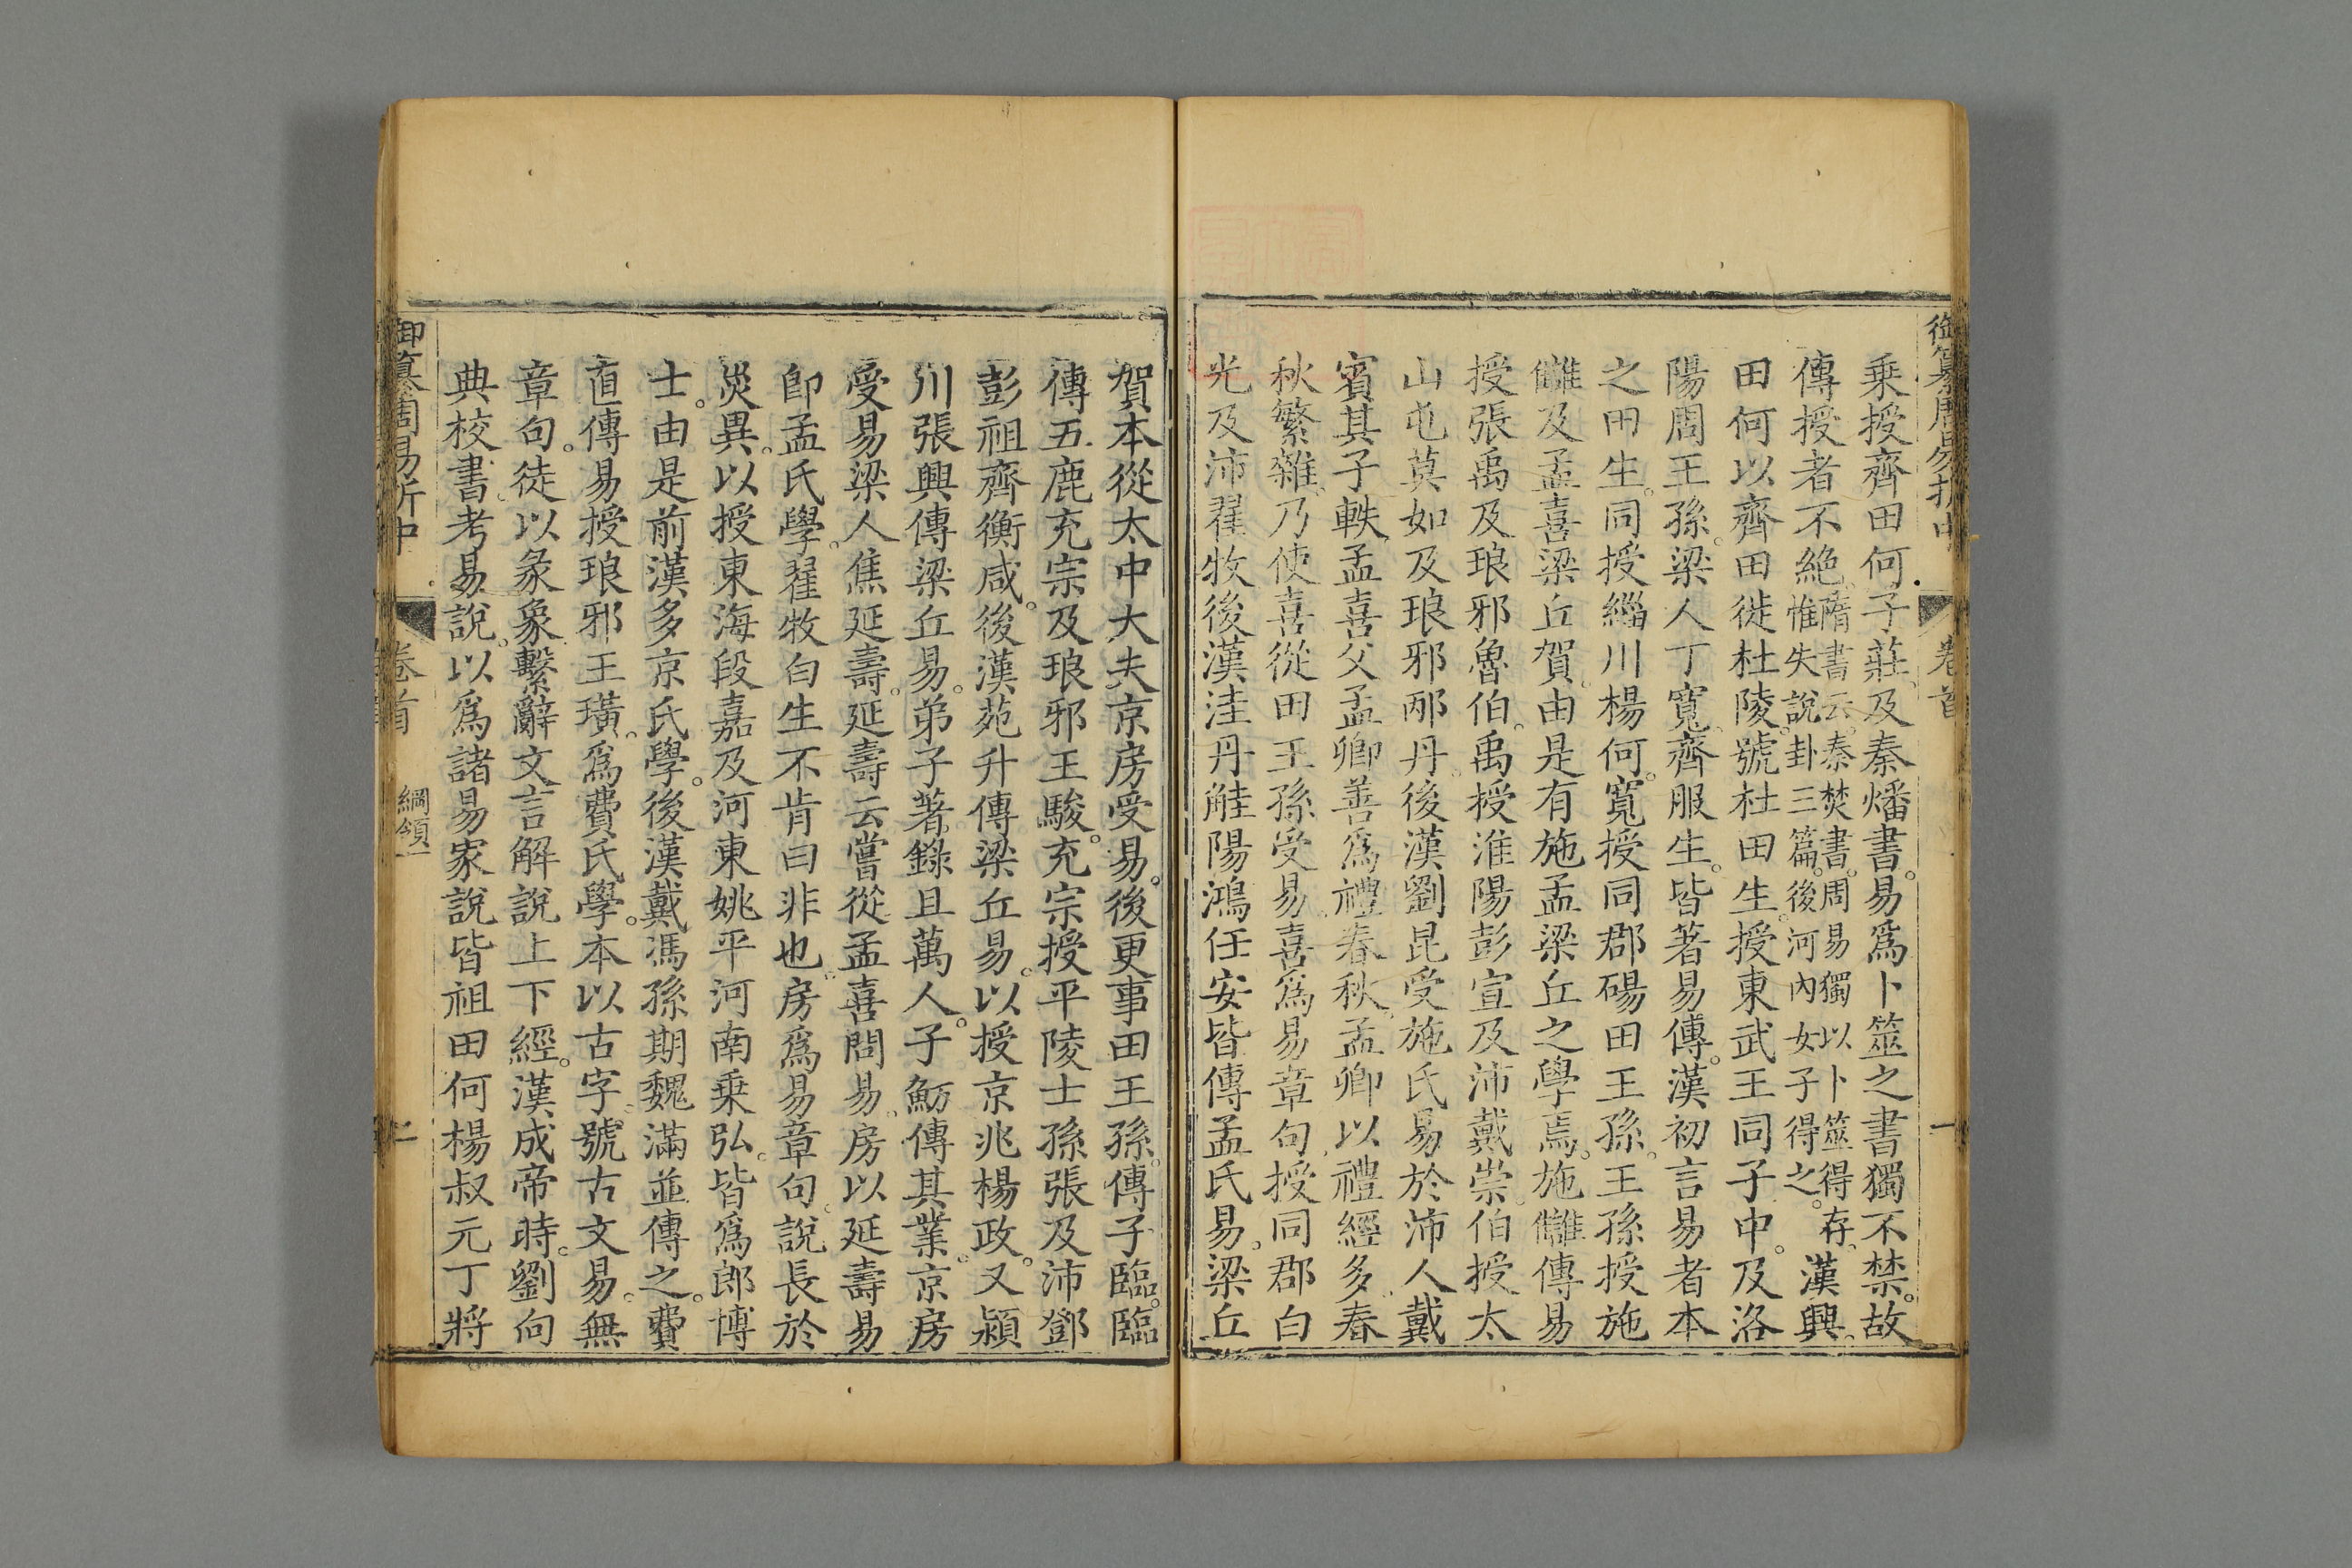 御纂周易折中
卷首
一
乗授齊田何子莊及秦燔書。易爲卜筮之書獨不禁。故
傳授者不絶。隋書云。秦焚書。周易獨以卜筮得存。惟失說卦三篇。後河內女子得之。漢興。
田何以齊田徙杜陵。號杜田生。授東武王同子中。及洛
陽周王孫。梁人丁寬。齊服生。皆著易傳。漢初言易者本
之田生。同授緇川楊何。寬授同郡碭田王孫。王孫授施
讎及孟喜梁丘賀。由是有施孟梁丘之學焉。施讎傳易
授張禹及琅邪魯伯。禹授淮陽彭宣及沛戴崇。伯授太
山屯莫如及琅邪邴丹。後漢劉昆受施氏易於沛人戴
賓其子軼。孟喜父孟卿善爲禮春秋。孟卿以禮經多。春
秋繁雜。乃使喜從田王孫受易。喜爲易章句。授同郡白
光及沛翟牧後漢洼丹觟陽鴻任安皆傳孟氏易。梁丘
賀本從太中大夫京房受易。後更事田王孫。傳子臨。臨
傳五鹿充宗及琅邪王駿。充宗授平陵士孫張及沛鄧
彭祖齊衡咸。後漢范升傳梁丘易。以授京兆楊政。又潁
川張興傳梁丘易。弟子著錄且萬人。子魴傳其業。京房
受易梁人焦延壽。延壽云嘗從孟喜問易。房以延壽易
卽孟氏學。翟牧白生不肯曰非也。房爲易章句。說長於
災異。以授東海段嘉及河東姚平河南乗弘。皆爲郎博
士。由是前漢多京氏學。後漢戴馮孫期魏滿並傳之。費
直傳易授琅邪王璜。爲費氏學。本以古字。號古文易。無
章句。徒以彖象繫辭文言解說上下經。漢成帝時。劉向
典校書。考易說。以爲諸易家說皆祖田何楊叔元丁將
御纂周易折中
卷首
綱領一
二